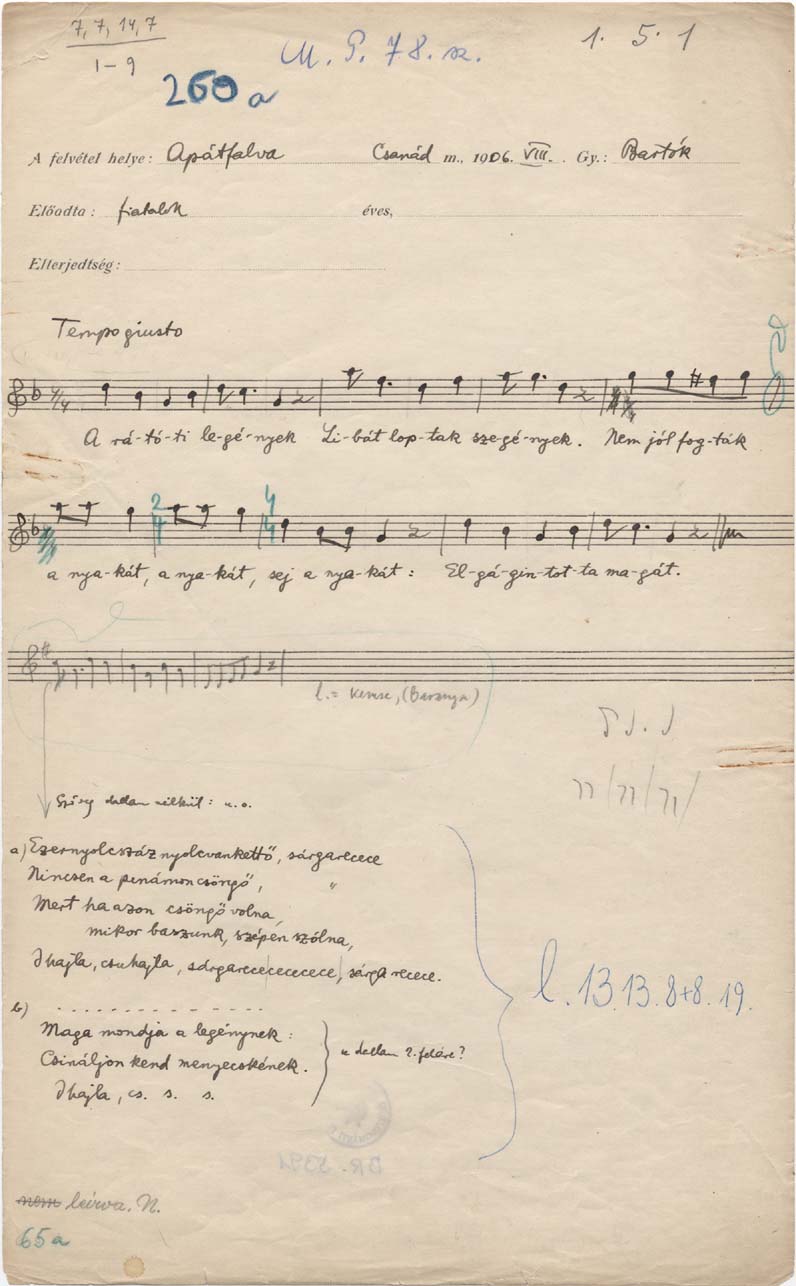 7, 7, 14, 7
1–9
M. P. 78. sz.
1. 5. 1
260 a
A felvétel helye: Apátfalva Csanád m., 1906. VIII. . Gy.: Bartók
Előadta: fiatalok éves,
Elterjedtség:
Tempo giusto
4/4
A rá-tó-ti le-gé-nyek Li-bát lop-tak sze-gé-nyek. Nem jól fog-ták
2/4 4/4
a nya-kát, a nya-kát, sej a nya-kát: El-gá-gin-tot-ta ma-gát.
l. = Kemse, (Baranya)
Szöveg dallam nélkül: u. o.
a) Ezernyolcszáz nyolcvankettő, sárgarecece
Nincsen a pinámon csöngő, "
Mert ha azon csöngő volna,
mikor baszunk, szépen szólna,
Ihajla, csuhajla, sárgarecececececece, sárga recece.
l. 13. 13. 8+8. 19.
b) . . . . . . . . . . . . . .
Maga mondja a legénynek:
Csináljon kend menyecskének.
Ihajla, cs. s. s.
a dallam 2. felére?
nem leírva. N.
65a